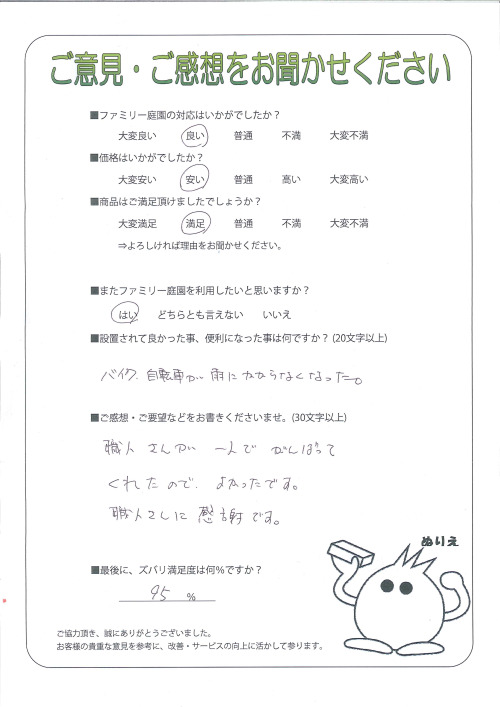 ご意見・ご感想をお聞かせください
■ファミリー庭園の対応はいかがでしたか？
大変良い 良い 普通 不満 大変不満
■価格はいかがでしたか？
大変安い 安い 普通 高い 大変高い
■商品はご満足頂けましたでしょうか？
大変満足 満足 普通 不満 大変不満
⇒よろしければ理由をお聞かせください。
■またファミリー庭園を利用したいと思いますか？
はい どちらとも言えない いいえ
■設置されて良かった事、便利になった事は何ですか？(20文字以上)
バイク、自転車が雨にかからなくなった。
■ご感想・ご要望などをお書きくださいませ。(30文字以上)
職人さんが一人でがんばって
くれたので、よかったです。
職人さんに感謝です。
ぬりえ
■最後に、ズバリ満足度は何％ですか？
95 %
ご協力頂き、誠にありがとうございました。
お客様の貴重な意見を参考に、改善・サービスの向上に活かして参ります。